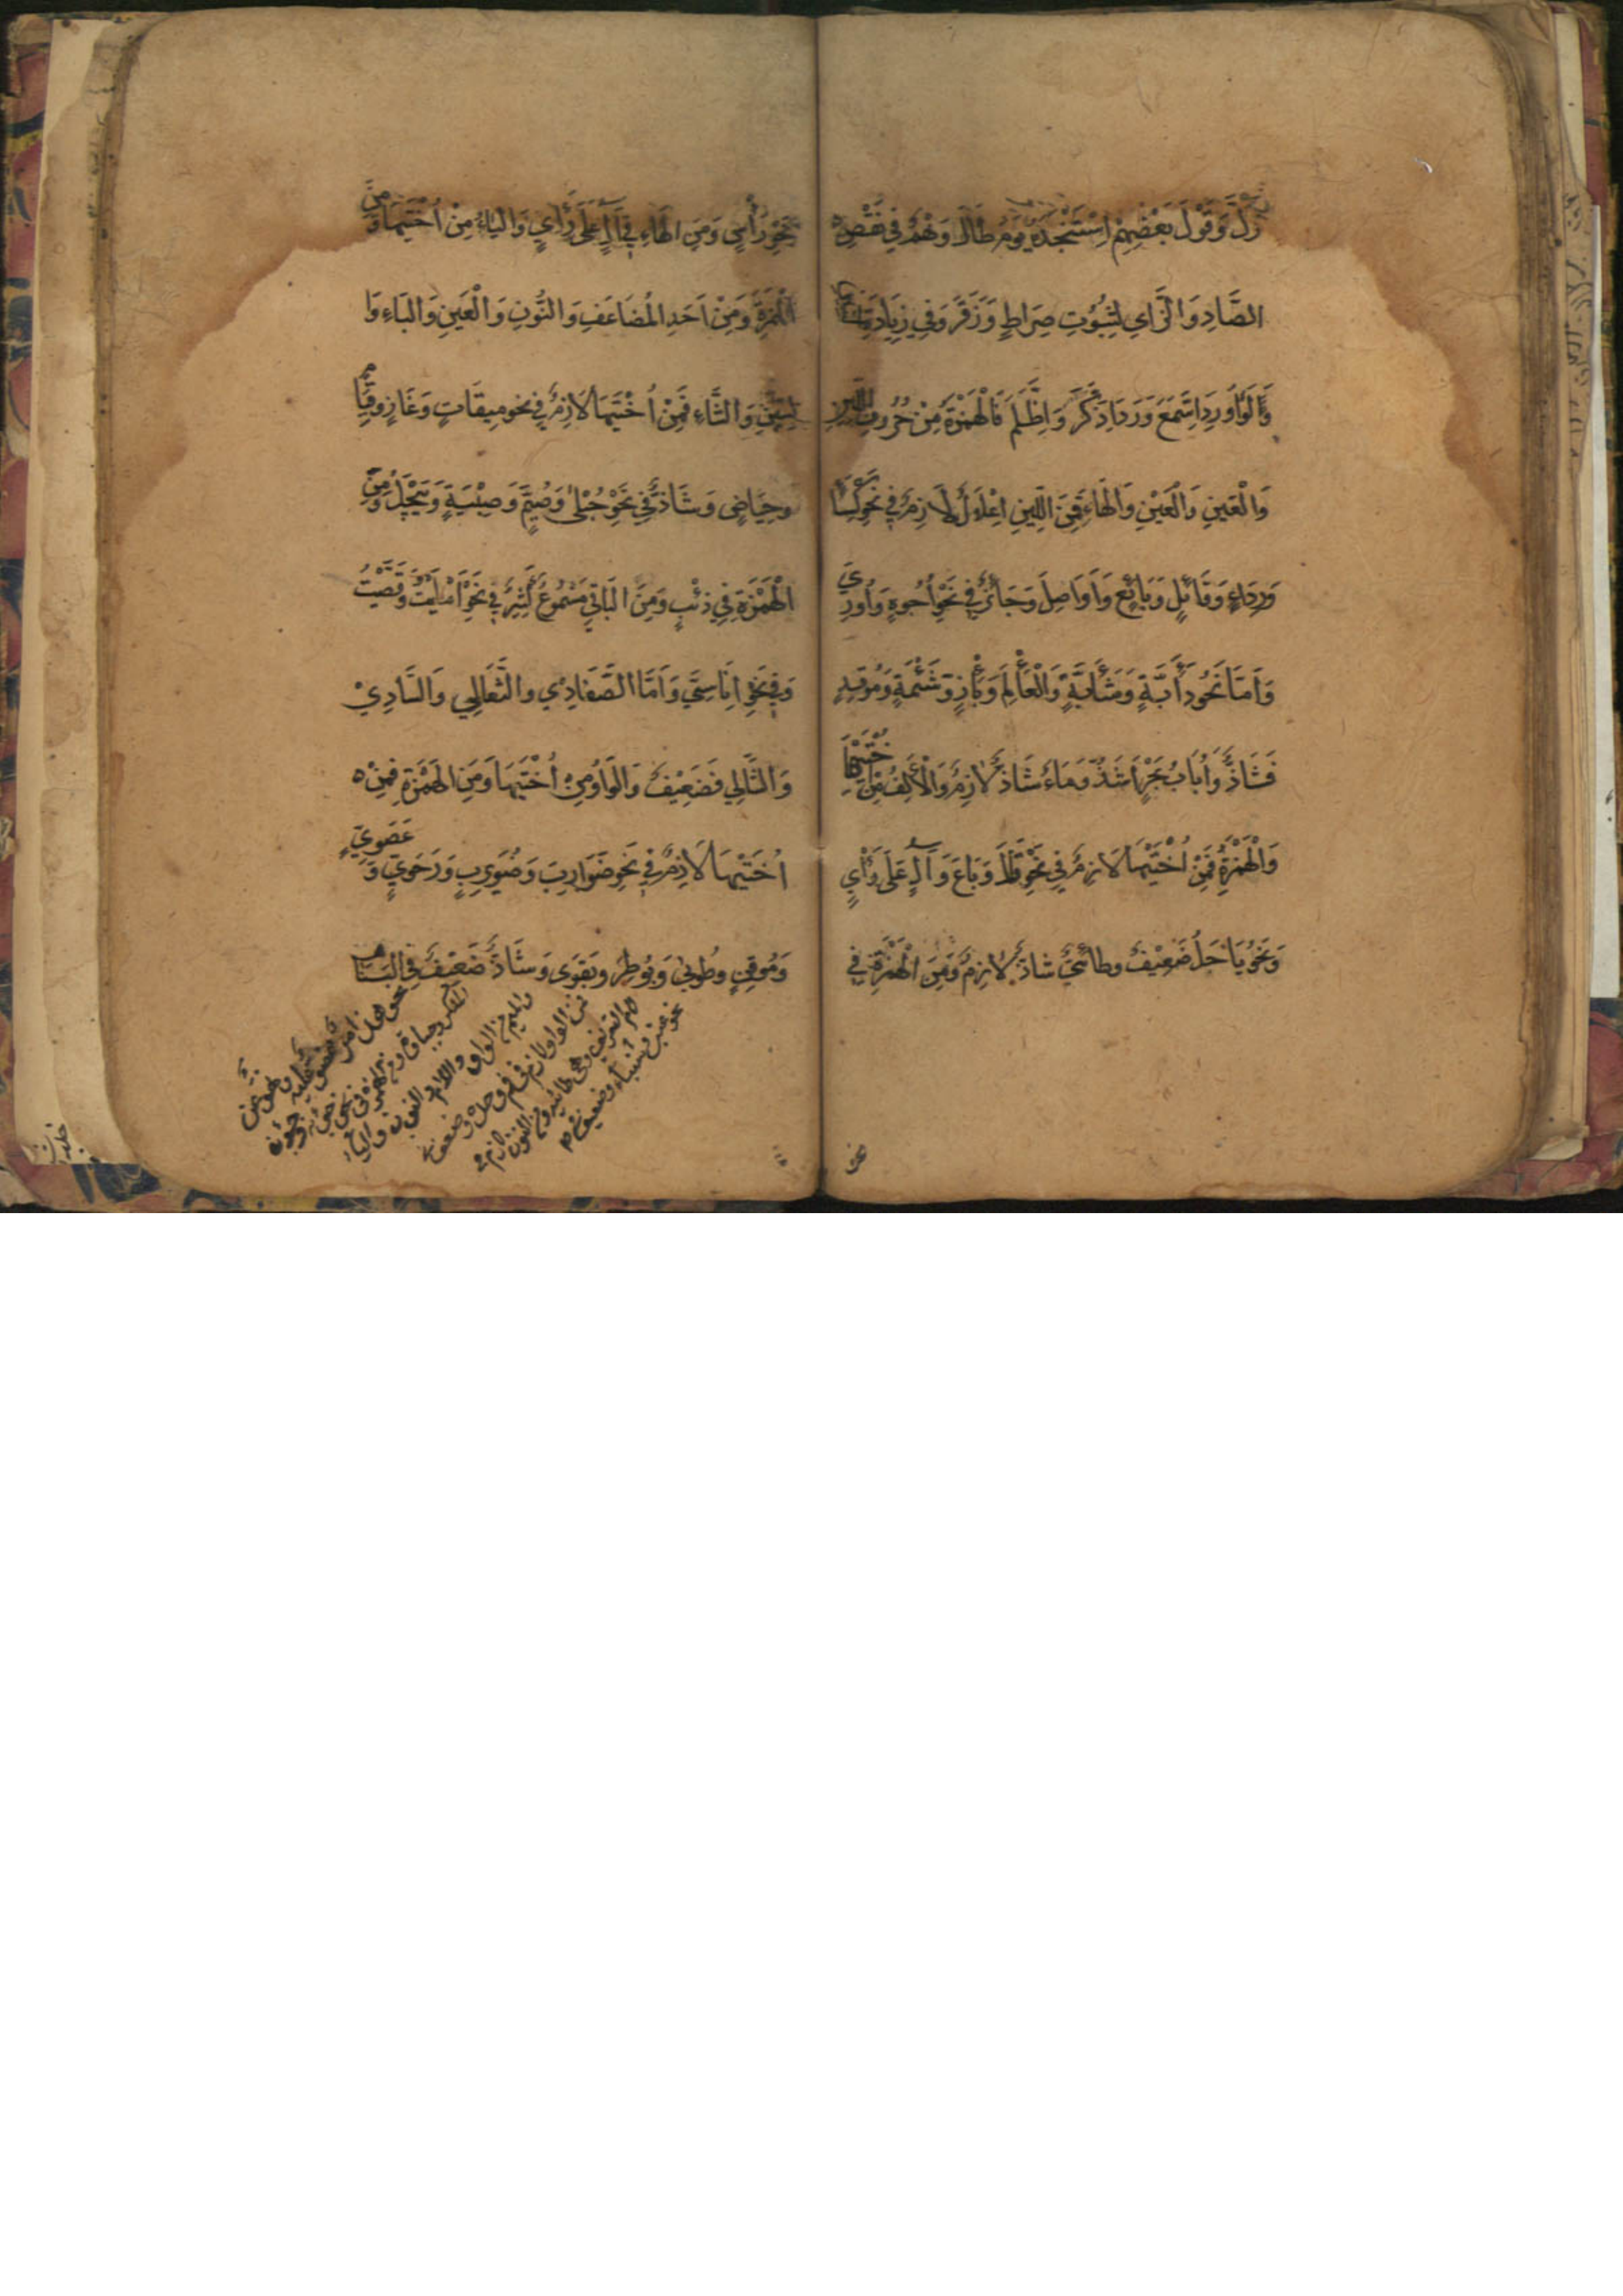 زَلَّ وَقَوْلُ بَعْضِهِمْ اِسْتَنْجَدَهُ يَوْمَ طَالَ وَهْمٌ فِي نَقْصِهِ
الصَّادِ وَالزَّاي لِثُبُوتِ صِرَاطٍ وَزَقَرٍ وَفِي زِيَادَتِهَا
وَلَوْ اُورِدَ اِسَّمَعَ وَرَدَ اِذَّكَرَ وَاِظَّلَمَ فَالْهَمْزَةُ مِنْ حُرُوفِ اللِّينِ
وَالْعَيْنِ وَالْهَاءِ فَمِنَ اللِّينِ اِعْلَالٌ لَازِمٌ فِي نَحْوِ كِسَاءٍ
وَرِدَاءٍ وَقَائِلٍ وَبَائِعٍ وَاَوَاصِلَ وَجَائِزٌ فِي نَحْوِ اُجُوهٍ وَاُورِيَ
وَاَمَّا نَحْوُ دَأَبَّةٍ وَشَأَبَّةٍ وَالْعَأْلِمِ وَبَأْزٍ وَشَئْمَةٍ وَمُؤْقِدٍ
فَشَاذٌّ وَاُبَابُ بَحْرٍ اَشَذُّ وَمَاءٌ شَاذٌّ لَازِمٌ وَالْاَلِفُ مِنْ اُخْتَيْهَا
وَالْهَمْزَةِ فَمِنْ اُخْتَيْهَا لَازِمٌ فِي نَحْوِ قَالَ وَبَاعَ وَآلٍ عَلَى رَأْيٍ
وَنَحْوُ يَاحَلُ ضَعِيْفٌ وَطَائِيٌّ شَاذٌّ لَازِمٌ وَمِنَ الْهَمْزَةِ فِي
نَحْوِ رَأْسٍ وَمِنَ الْهَاءِ فِي آلٍ عَلَى رَأْيٍ وَالْيَاءُ مِنْ اُخْتَيْهَا وَمِنَ
الْهَمْزَةِ وَمِنْ اَحَدِ الْمُضَاعَفِ وَالنُّونِ وَالْعَيْنِ وَالْبَاءِ وَا
لسِّيْنِ وَالثَّاءِ فَمِنْ اُخْتَيْهَا لَازِمٌ فِي نَحْوِ مِيقَاتٍ وَغَازٍ وَقِيَامٍ
وَحِيَاضٍ وَشَاذٌّ فِي نَحْوِ حُبْلَى وَصُيَّمٍ وَصِبْيَةٍ وَيَيْجَلُ وَمِنَ
الْهَمْزَةِ فِي ذِئْبٍ وَمِنَ الْبَاقِي مَسْمُوعٌ كَثِيْرٌ فِي نَحْوِ اَمْلَيْتُ وَقَصَّيْتُ
وَفِي نَحْوِ اَنَاسِيَّ وَاَمَّا الضَّفَادِيْ وَالثَّعَالِي وَالسَّادِيْ
وَالثَّالِي فَضَعِيْفٌ وَالْوَاوُ مِنْ اُخْتَيْهَا وَمِنَ الْهَمْزَةِ فَمِنْ
اُخْتَيْهَا لَازِمٌ فِي نَحْوِ ضَوَارِبَ وَضُوَيْرِبٍ وَرَحَوِيٍّ وَعَصَوِيٍّ
وَمُوْقِنٍ وَطُوْبَى وَبُوْطِرَ وَبَقْوَى وَشَاذٌّ ضَعِيْفٌ فِي
والميم من الواو واللام والنون والباء
فمن الواو لازم في فم وحده وضعيف في
لام التعريف وهي طائية ومن النون لازم في
نحو عنبر وشنباء وضعيف في